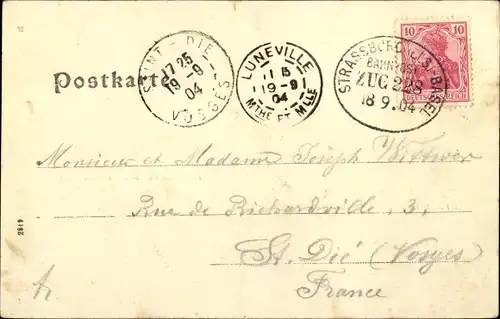 Postkarte
SAINT-DIÉ
17 25
19-9
04
VOSGES
LUNEVILLE
11 15
19-9
04
MTHE ET MLLE
STRASSBURG
BAHNPOST
ZUG 228
18 9.04
10 10
DEUTSCHES REICH
Monsieur et Madame Joseph Wittwer
Rue de Richardville, 3,
St. Dié (Vosges)
France
2619